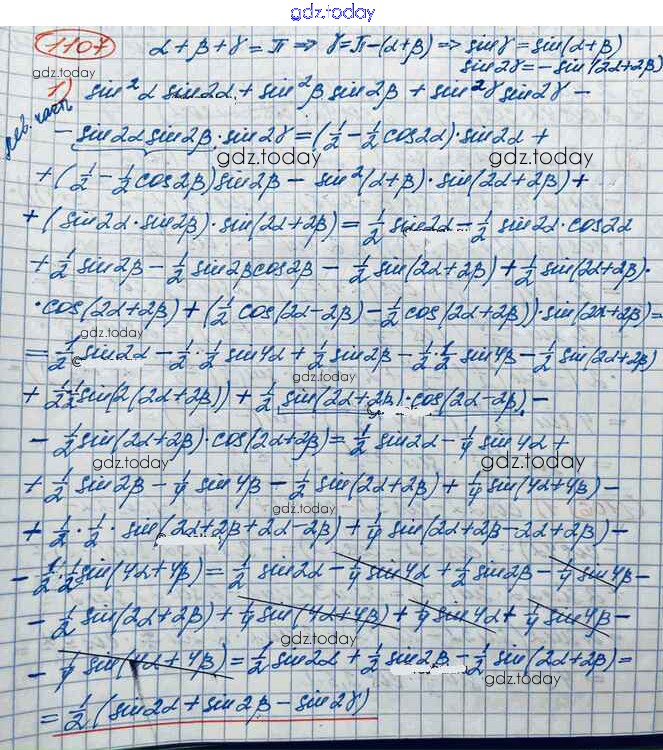 gdz.today
1107 α + β + γ = π ⇒ γ = π - (α + β) ⇒ sin γ = sin(α + β)
sin 2γ = - sin (2α + 2β)
gdz.today
1) sin²α sin 2α + sin²β sin 2β + sin²γ sin 2γ -
лев. часть
- sin 2α sin 2β · sin 2γ = (1/2 - 1/2 cos 2α) · sin 2α +
gdz.today gdz.today
+ (1/2 - 1/2 cos 2β) sin 2β - sin²(α + β) · sin (2α + 2β) +
+ (sin 2α · sin 2β) · sin (2α + 2β) = 1/2 sin 2α - 1/2 sin 2α · cos 2α
gdz.today
+ 1/2 sin 2β - 1/2 sin 2β cos 2β - 1/2 sin (2α + 2β) + 1/2 sin (2α + 2β) ·
· cos (2α + 2β) + (1/2 cos (2α - 2β) - 1/2 cos (2α + 2β)) · sin (2α + 2β) =
gdz.today
= 1/2 sin 2α - 1/2 · 1/2 sin 4α + 1/2 sin 2β - 1/2 · 1/2 sin 4β - 1/2 sin (2α + 2β)
gdz.today
+ 1/2 · 1/2 sin (2(2α + 2β)) + 1/2 sin (2α + 2β) · cos (2α - 2β) -
- 1/2 sin (2α + 2β) · cos (2α + 2β) = 1/2 sin 2α - 1/4 sin 4α +
gdz.today gdz.today
+ 1/2 sin 2β - 1/4 sin 4β - 1/2 sin (2α + 2β) + 1/4 sin (4α + 4β) -
gdz.today
+ 1/2 · 1/2 · sin (2α + 2β + 2α - 2β) + 1/4 sin (2α + 2β - 2α + 2β) -
- 1/2 · 1/2 sin (4α + 4β) = 1/2 sin 2α - 1/4 sin 4α + 1/2 sin 2β - 1/4 sin 4β -
- 1/2 sin (2α + 2β) + 1/4 sin (4α + 4β) + 1/4 sin 4α + 1/4 sin 4β -
gdz.today
- 1/4 sin (4α + 4β) = 1/2 sin 2α + 1/2 sin 2β - 1/2 sin (2α + 2β) =
gdz.today gdz.today
= 1/2 (sin 2α + sin 2β - sin 2γ)